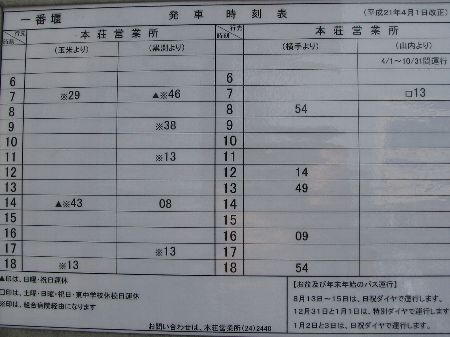 一番堰 発車時刻表 (平成21年4月1日改正)
行先 時刻 本荘営業所 行先 時刻 本荘営業所
(玉米より) (黒渕より) (横手より) (山内より)
4/1～10/31間運行
6 6
7 ※29 ▲※46 7 □13
8 8 54
9 ※38 9
10 10
11 ※13 11
12 12 14
13 13 49
14 ▲※43 08 14
15 15
16 16 09
17 ※13 17
18 ※13 18 54
▲印は、日曜・祝日運休
□印は、土曜・日曜・祝日・東中学校休校日運休
※印は、組合病院経由になります
お問い合わせは、本荘営業所(24)2440
【お盆及び年末年始のバス運行】
8月13日～15日は、日祝ダイヤで運行します。
12月31日と1月1日は、特別ダイヤで運行します。
1月2日と3日は、日祝ダイヤで運行します。